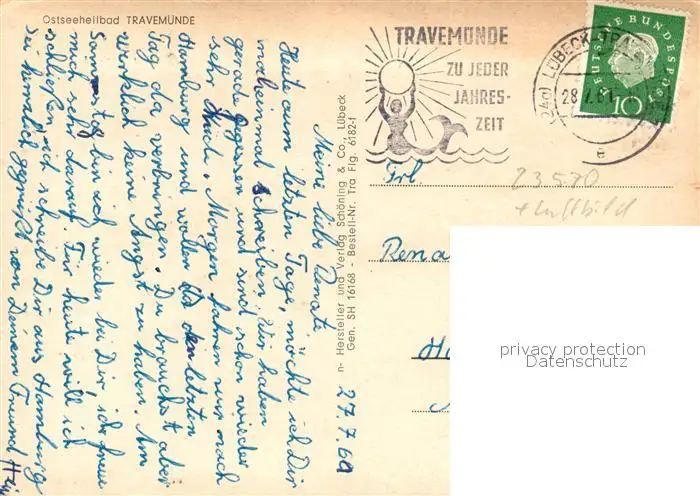 Ostseeheilbad TRAVEMÜNDE
Meine liebe Renate
Heute am letzten Tage, möchte ich Dir
noch einmal schreiben. Wir haben
gerade gegessen und sind schon wieder
sehr Morgen fahren wir nach
Hamburg und wollen da den letzten
Tag da verbringen. Du brauchst aber
wirklich keine Angst zu haben. Am
Samstag bin ich wieder bei Dir, ich freu
mich sehr darauf. Für heute will ich
schließen, ich schreibe Dir aus Hamburg
sei herzlich gegrüßt von Deinem Freund
27.7.60
n- Hersteller und Verlag Schöning & Co., Lübeck
Gen. SH 16168 - Bestell-Nr. Tra Flg. 6182-1
TRAVEMÜNDE
ZU JEDER
JAHRES-
ZEIT
(24a) LÜBECK-TRA
28.7.61
DEUTSCHE BUNDESPOST
10
Frl.
23570
+ Luftbild
Rena
privacy protection
Datenschutz